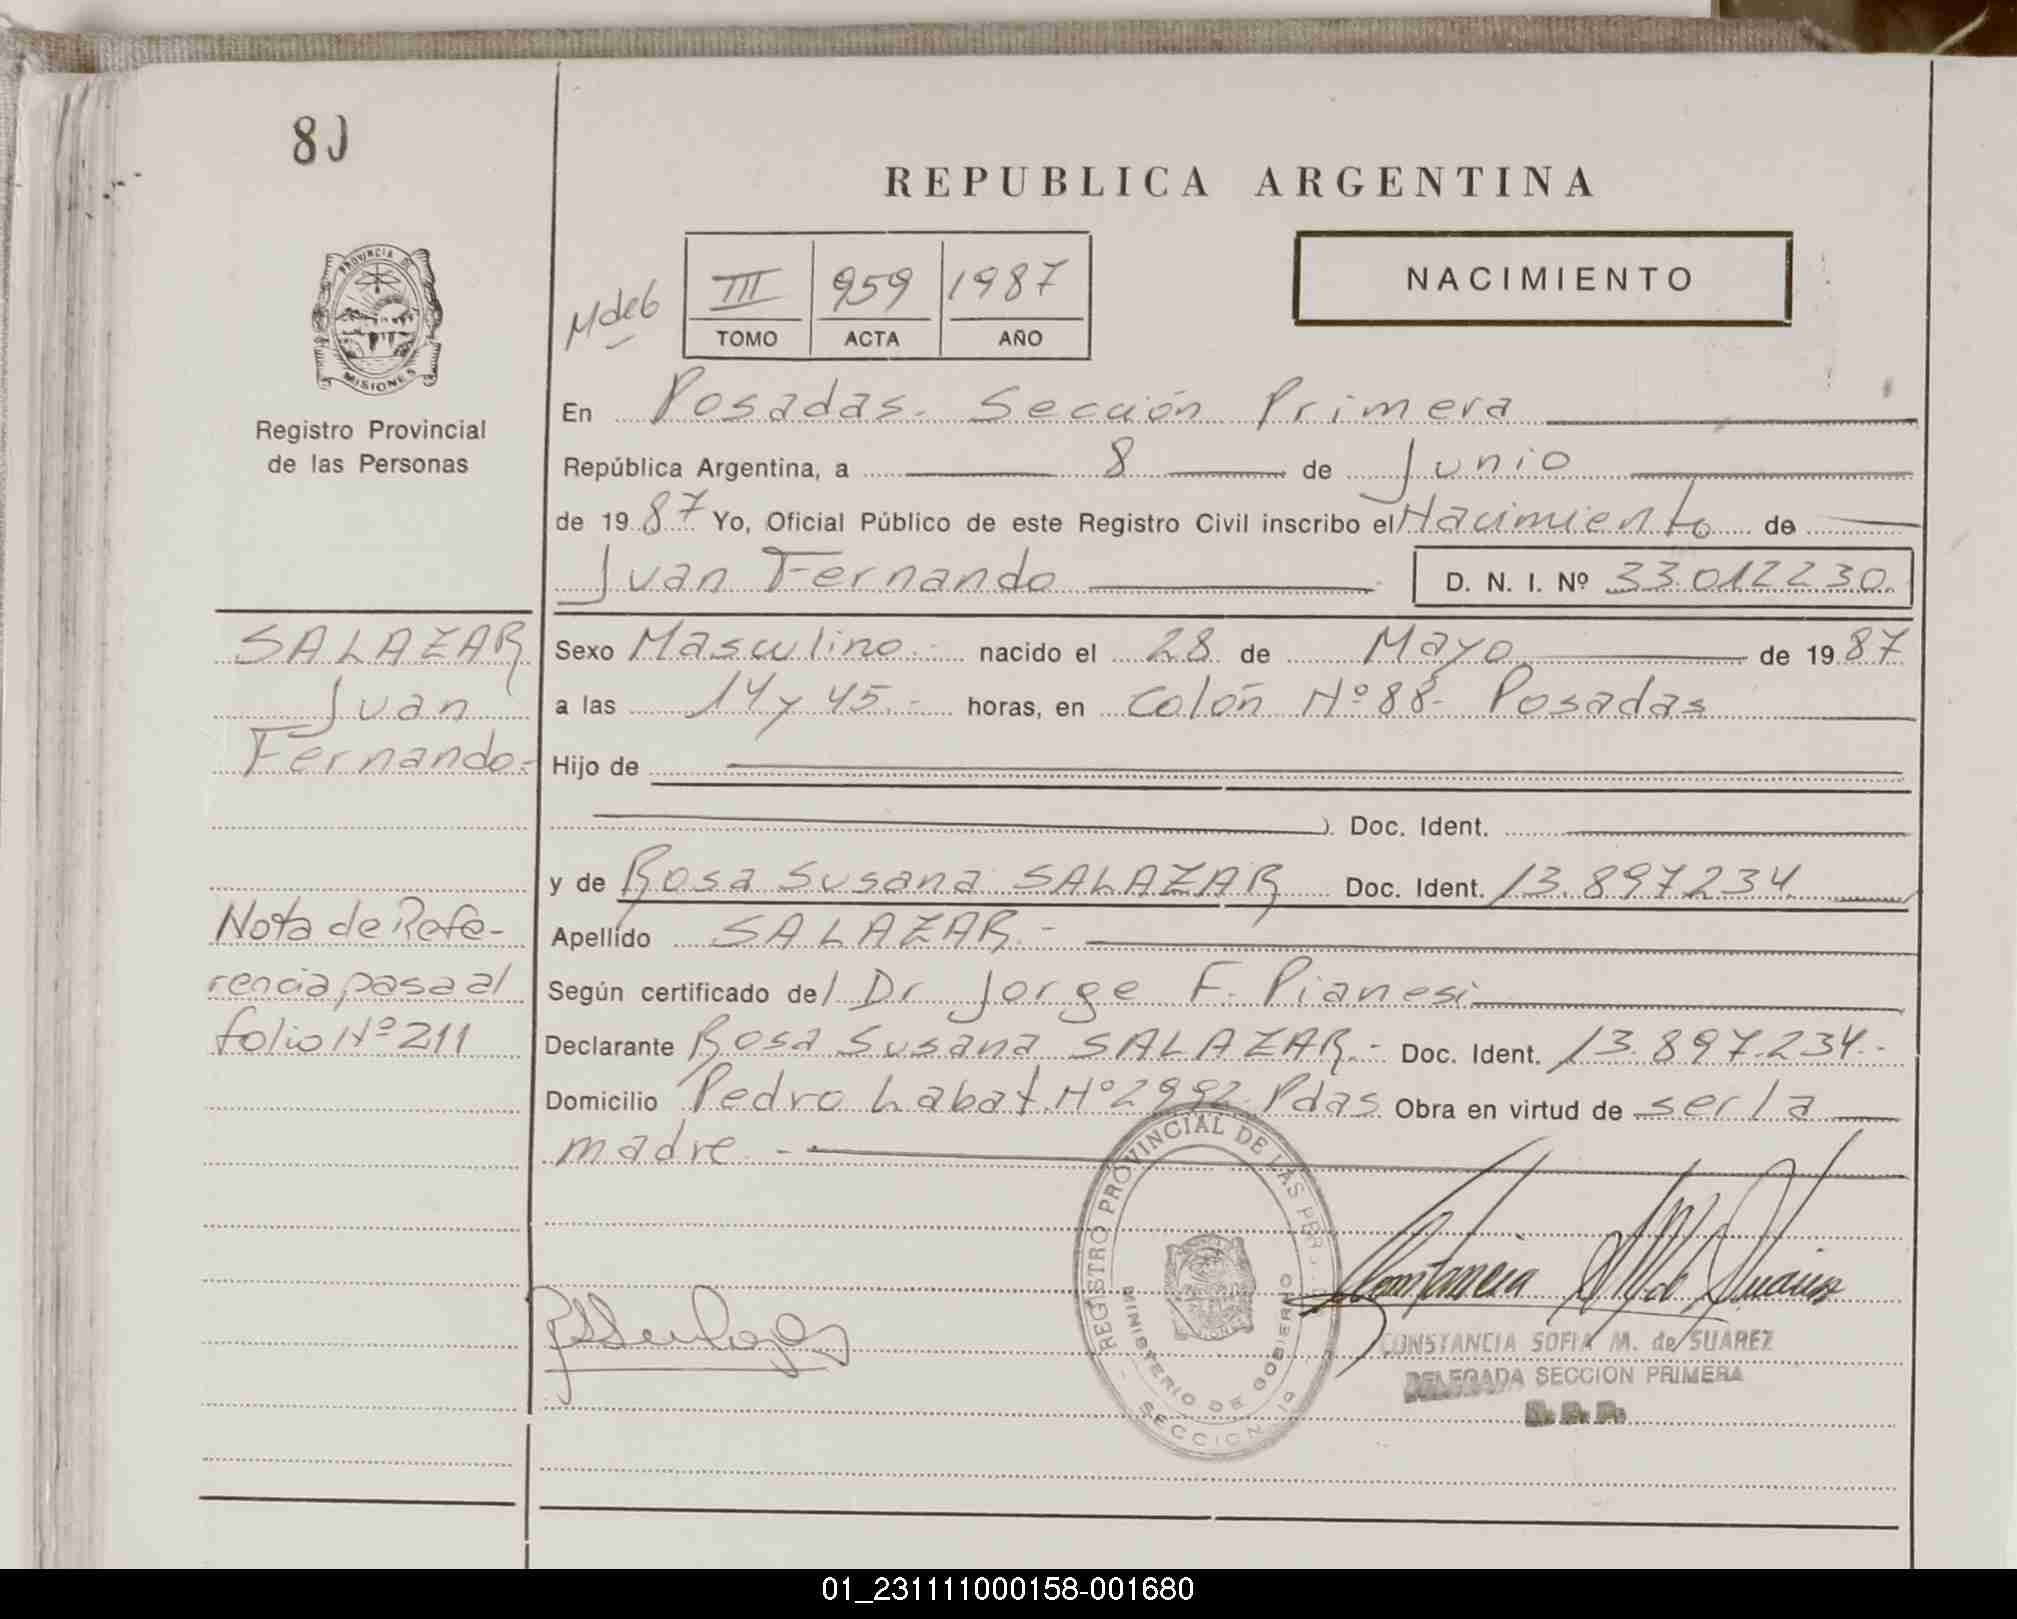 80
REPUBLICA ARGENTINA
PROVINCIA DE
MISIONES
Registro Provincial
de las Personas
III 959 1987
TOMO ACTA AÑO
NACIMIENTO
En Posadas.- Sección Primera
República Argentina, a 8 de Junio
de 1987 Yo, Oficial Público de este Registro Civil inscribo el Nacimiento de
Juan Fernando D. N. I. Nº 33.012230.
SALAZAR
Juan
Fernando.-
Sexo Masculino.- nacido el 28 de Mayo de 1987
a las 14 y 45.- horas, en Colón Nº 88- Posadas
Hijo de
Doc. Ident.
y de Rosa Susana SALAZAR Doc. Ident. 13.897234
Nota de Refe-
rencia pasa al
folio Nº 211
Apellido SALAZAR.-
Según certificado del Dr Jorge F. Pianesi
Declarante Rosa Susana SALAZAR.- Doc. Ident. 13.897.234.-
Domicilio Pedro Labat Nº 2992 Pdas Obra en virtud de ser la
madre.-
REGISTRO PROVINCIAL DE LAS PER
MINISTERIO DE GOBIERNO
SECCION 1ª
CONSTANCIA SOFIA M. de SUAREZ
DELEGADA SECCION PRIMERA
01_231111000158-001680